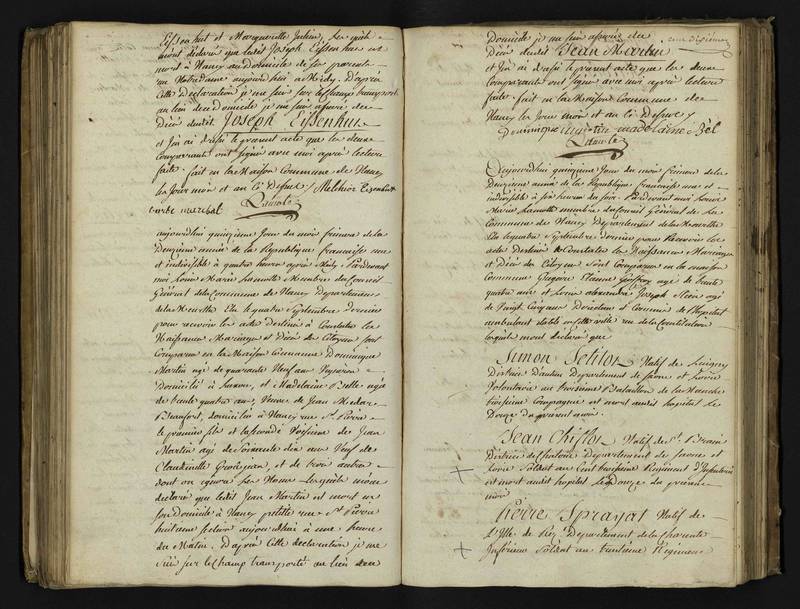 Eissenhut et Marguerite Julien, lesquels
mont déclaré que ledit Joseph Eissenhut est
mort à Nancy au domicile de ses parents
rue Notre Dame aujourdhui à Midy. D'après
cette Déclaration je me suis sur le champ transporté
au lieu de ce domicile je me suis assuré du
Décès dudit Joseph Eissenhut
et j'en ai dressé le présent acte que les deux
Comparants ont signé avec moi après lecture
faite. fait en la Maison Commune de Nancy
les Jour mois et an ci Dessus / Melchior
barbe marchal Lamotte
aujourdhui quinzieme Jour du mois frimaire de la
Deuzieme année de la Republique française une
et indivisible à quatre heures après Midy Pardevant
moi Louis Marie Lamotte Membre du Conseil
Général de la Commune de Nancy Departement
de la Meurthe Elu le quatre Septembre dernier
pour recevoir les actes destinés à Constater les
Naissances Mariages et Décès des Citoyens sont
Comparus en la Maison Commune Dominique
Martin agé de quarante Neuf ans
Domicilié à et Madelaine Belle agée
de trente quatre ans, Veuve de Jean
Beaufort, domiciliée à Nancy rue St. Pierre
le premier fils et la seconde Voisine de Jean
Martin agé de Soixante dix ans Veuf de
Claudinette Grosjean, et de trois autres
dont on ignore les Noms lesquels mont
déclaré que ledit Jean Martin est mort en
son Domicile à Nancy petite rue St Pierre
huitieme section aujourdhui à une heure
du Matin. D'après cette déclaration je me
suis sur le champ transporté au lieu de ce
Domicile je me suis assuré du
Décès dudit Jean Martin
et j'en ai dressé le présent acte que les deux
Comparants ont signé avec moi après lecture
faite. fait en la Maison Commune de
Nancy les Jour mois et an ci Dessus /
Dominique martin madelaine Bel
Lamotte
Aujourdhui quinzieme Jour du mois frimaire de la
Deuzieme année de la Republique française une et
indivisible à six heures du soir Pardevant moi Louis
Marie Lamotte membre du Conseil Général de la
Commune de Nancy Departement de la Meurthe
Elu le quatre Septembre dernier pour recevoir les
actes Destinés à Constater les Naissances Mariages
et Décès des Citoyens sont Comparus en la maison
Commune Gregoire Etienne Geoffroy agé de trente
quatre ans et Louis alexandre Joseph Klein agé
de Vingt Cinq ans Directeur et Commis de l'hopital
ambulant établi en cette ville rue de la Constitution
lesquels mont déclaré que
Simon Natif de
District d'autun Departement de Saone et Loire
Volontaire au troisieme Bataillon de la Manche
troisieme Compagnie est mort audit hopital le
Douze du présent mois.
Jean Chiflot Natif de St.
District de Chalons Departement de Saone et
Loire Soldat au Cent troisieme Regiment d'Infanterie
est mort audit hopital le Douze du présent
mois
Pierre Sprayat Natif de
L'Isle de Rez Departement de la Charente
Inferieure Soldat au trentieme Regiment